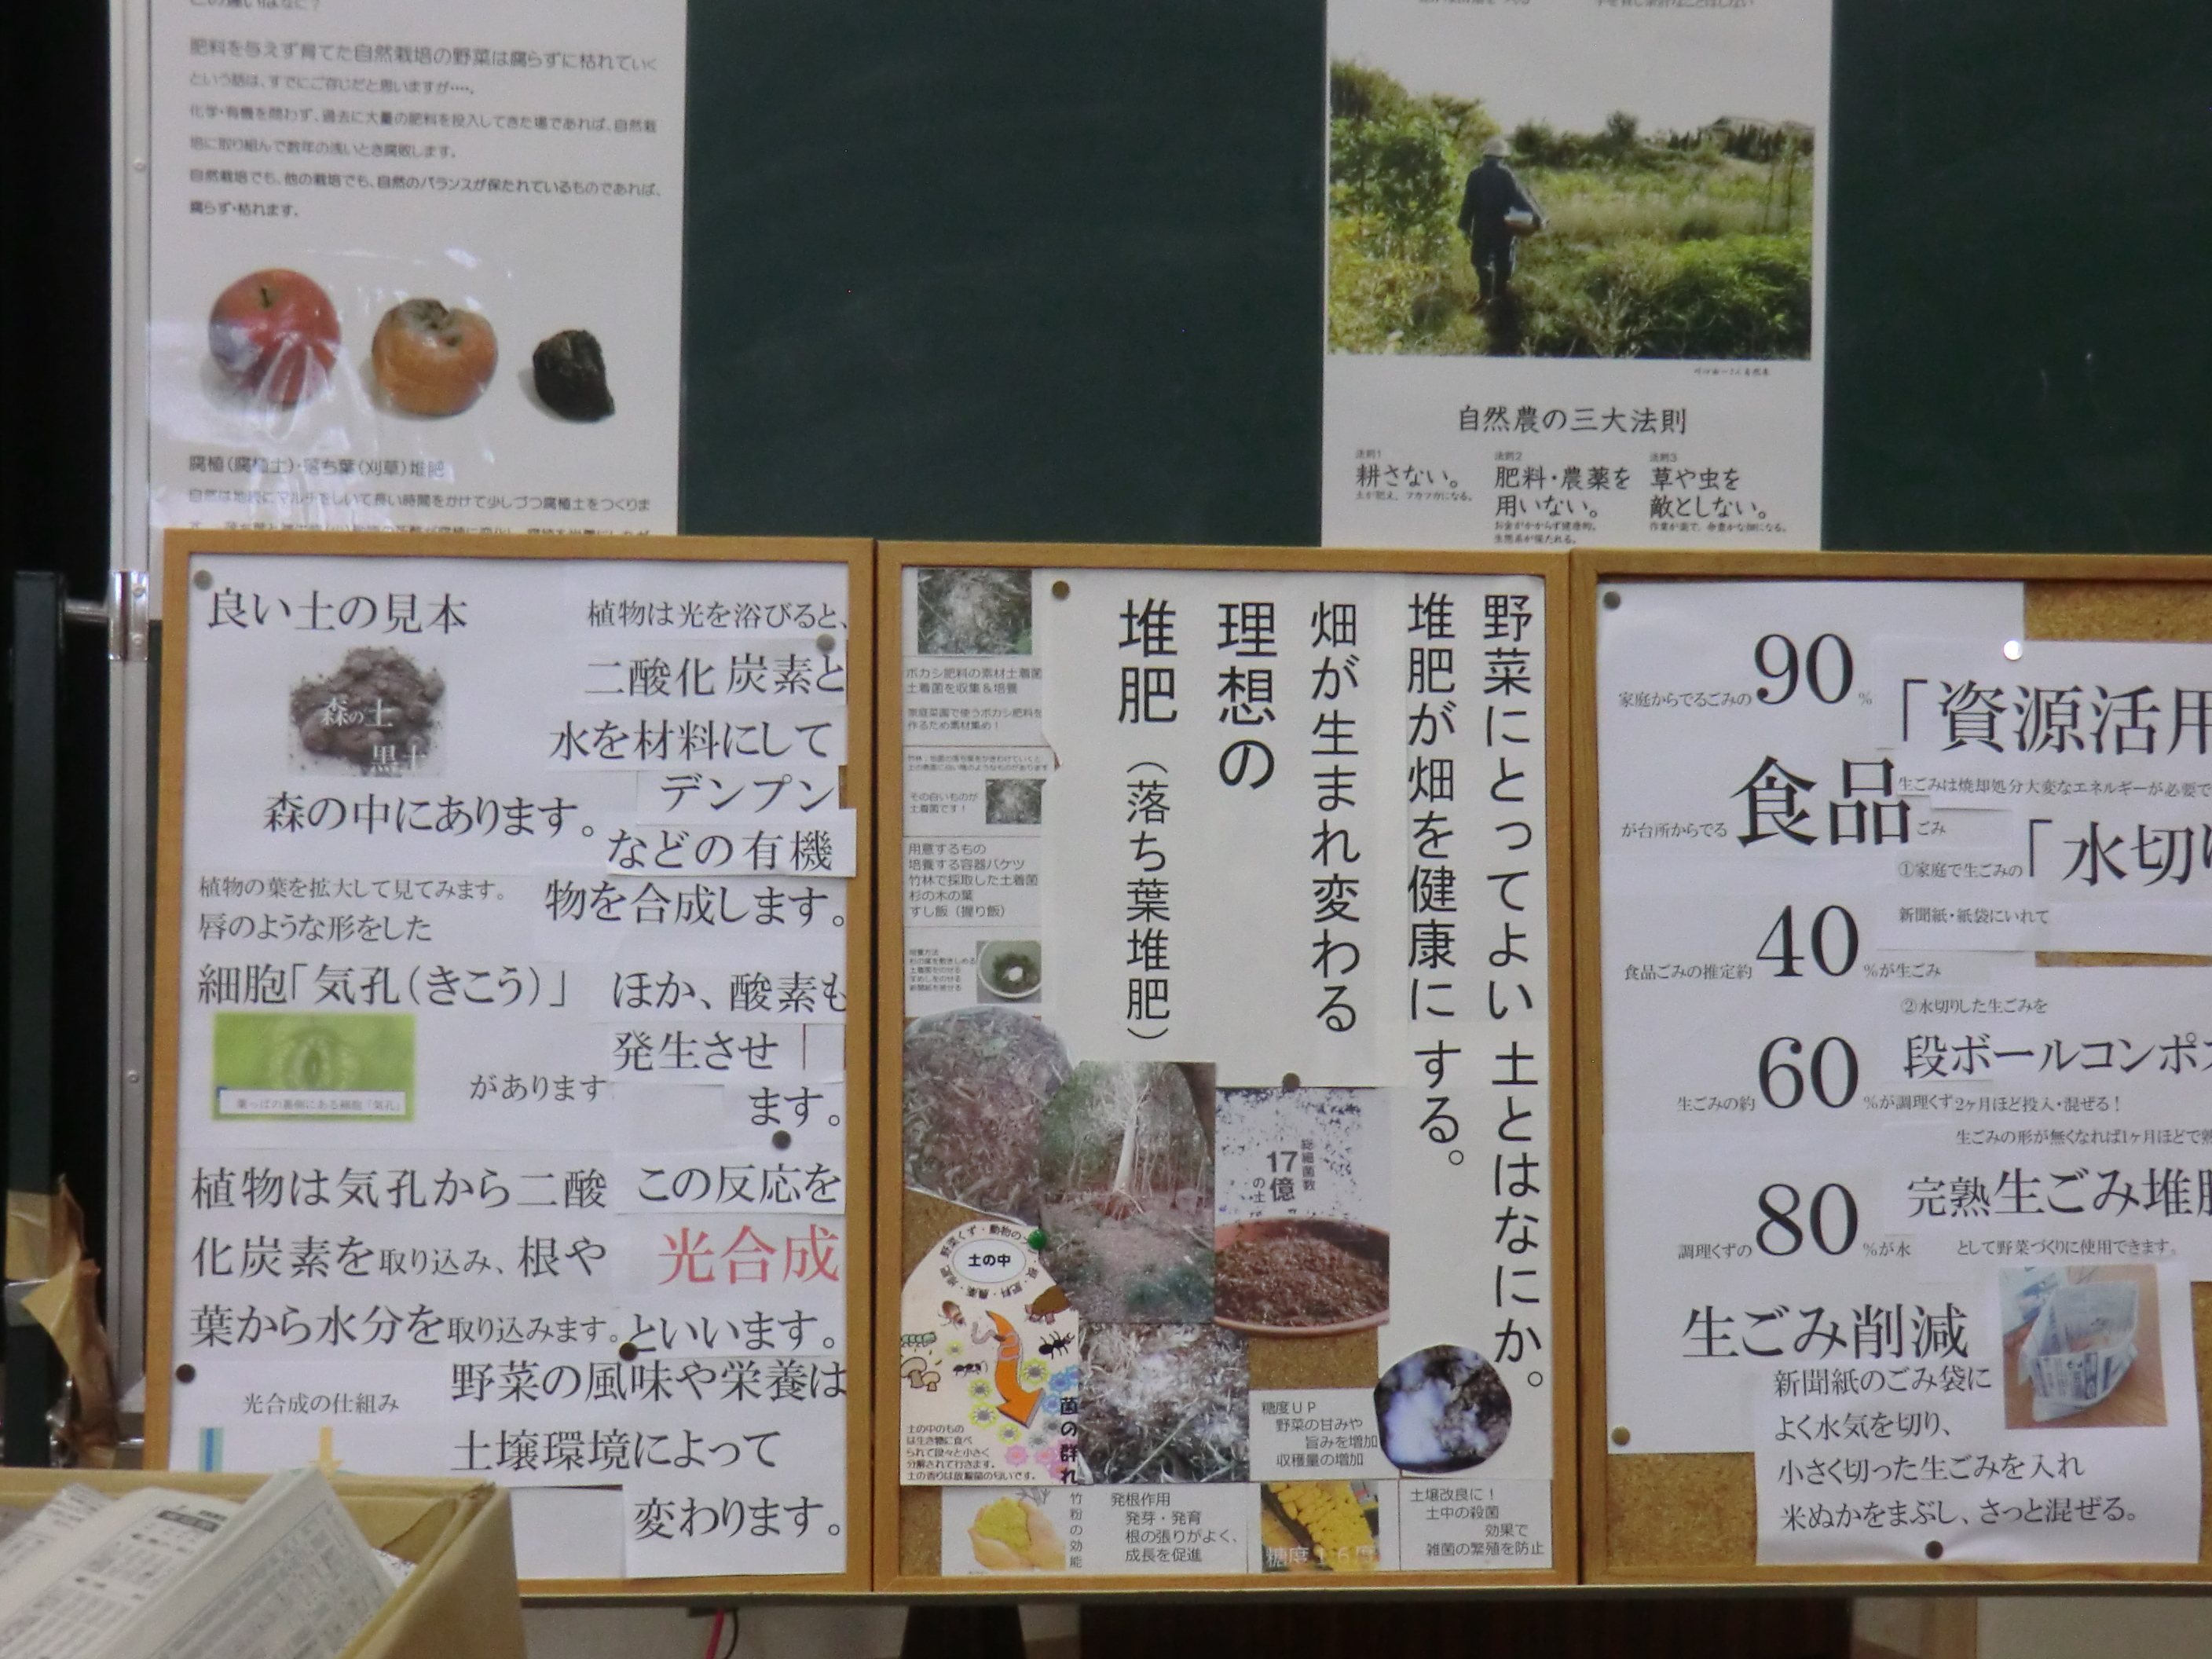 肥料を与えず育てた自然栽培の野菜は腐らずに枯れていく
という話は、すでにご存じだと思いますが‥‥。
化学・有機を問わず、過去に大量の肥料を投入してきた場であれば、自然栽
培に取り組んで数年の浅いとき腐敗します。
自然栽培でも、他の栽培でも、自然のバランスが保たれているものであれば、
腐らず・枯れます。
腐植（腐植土）・落ち葉（刈草）堆肥
自然は地表にマルチをしいて長い時間をかけて少しづつ腐植土をつくりま
自然農の三大法則
法則1
耕さない。
土が肥え、フカフカになる。
法則2
肥料・農薬を
用いない。
お金がかからず健康的。
生態系が保たれる。
法則3
草や虫を
敵としない。
作業が楽で、命豊かな畑になる。
良い土の見本
森の土
黒土
森の中にあります。
植物の葉を拡大して見てみます。
唇のような形をした
細胞「気孔（きこう）」
葉っぱの裏側にある細胞「気孔」
があります
植物は気孔から二酸
化炭素を取り込み、根や
葉から水分を取り込みます。
光合成の仕組み
植物は光を浴びると、
二酸化炭素と
水を材料にして
デンプン
などの有機
物を合成します。
ほか、酸素も
発生させ「
ます。
この反応を
光合成
といいます。
野菜の風味や栄養は
土壌環境によって
変わります。
野菜にとってよい土とはなにか。
堆肥が畑を健康にする。
畑が生まれ変わる
理想の
堆肥（落ち葉堆肥）
ボカシ肥料の素材土着菌
土着菌を収集＆培養
家庭菜園で使うボカシ肥料を
作るため素材集め！
その白いものが
土着菌です！
用意するもの
培養する容器バケツ
竹林で採取した土着菌
杉の木の葉
すし飯（握り飯）
総細菌数
17億
の土
土の中
土の中のもの
は生き物に食べ
られて段々と小さく
分解されて行きます。
土の香りは放線菌の匂いです。
菌の群れ
糖度ＵＰ
野菜の甘みや
旨みを増加
収穫量の増加
竹粉の効能
発根作用
発芽・発育
根の張りがよく、
成長を促進
糖度１６度
土壌改良に！
土中の殺菌
効果で
雑菌の繁殖を防止
家庭からでるごみの90%
が台所からでる食品ごみ
食品ごみの推定約40%が生ごみ
生ごみの約60%が調理くず
調理くずの80%が水
生ごみ削減
「資源活用
生ごみは焼却処分大変なエネルギーが必要で
①家庭で生ごみの「水切り
新聞紙・紙袋にいれて
②水切りした生ごみを
段ボールコンポス
2ヶ月ほど投入・混ぜる！
生ごみの形が無くなれば1ヶ月ほどで熟
完熟生ごみ堆肥
として野菜づくりに使用できます。
新聞紙のごみ袋に
よく水気を切り、
小さく切った生ごみを入れ
米ぬかをまぶし、さっと混ぜる。